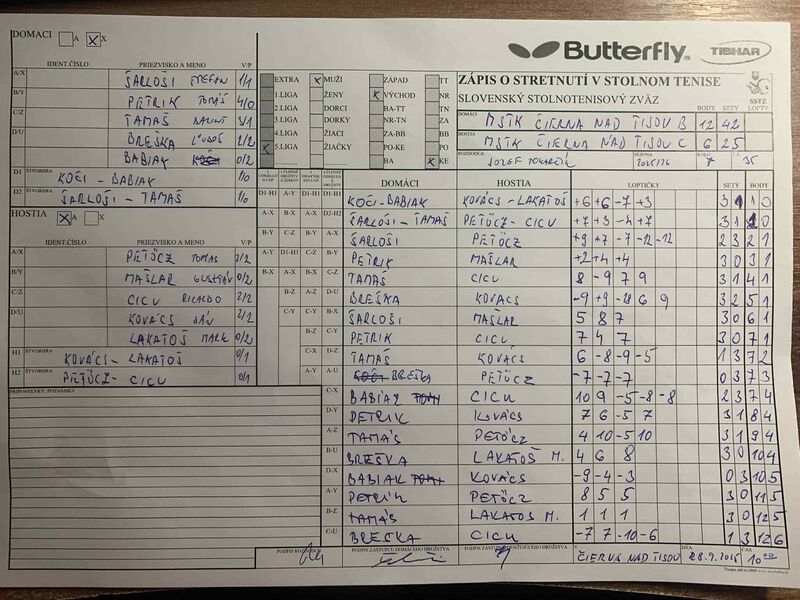 DOMACI A X
IDENT.ČÍSLO PRIEZVISKO A MENO V/P
A/X ŠARLOŠI ŠTEFAN 1/1
B/Y PETRIK TOMÁŠ 4/0
C/Z TAMÁŠ 3/1
D/U BREŠKA ĽUDOŠ 2/2
BABIAK 0/2
D1 ŠTVORHRA KOČI - BABIAK 1/0
D2 ŠTVORHRA ŠARLOŠI - TAMÁŠ 1/0
HOSTIA A X
IDENT.ČÍSLO PRIEZVISKO A MENO V/P
A/X PETÖCZ TOMAS 2/2
B/Y MAŠLAR GUSTÁV 0/2
C/Z CICU RICARDO 2/2
D/U KOVÁCS JÁN 2/2
LAKATOŠ MARK 0/2
H1 ŠTVORHRA KOVÁCS - LAKATOŠ 0/1
H2 ŠTVORHRA PETÖCZ - CICU 0/1
PRIPOMIENKY, POZNÁMKY
Butterfly TIBHAR
EXTRA X MUŽI ZÁPAD TT
1.LIGA ŽENY X VÝCHOD NR
2.LIGA DORCI BA-TT TN
3.LIGA DORKY NR-TN ZA
4.LIGA ŽIACI ZA-BB BB
X 5.LIGA ŽIAČKY KO-PO PO
BA X KE
ZÁPIS O STRETNUTÍ V STOLNOM TENISE
SLOVENSKÝ STOLNOTENISOVÝ ZVÄZ
SSTZ
BODY SETY LOPTY
DOMÁCI MSTK ČIERNA NAD TISOU B 12 42
HOSTIA MSTK ČIERNA NAD TISOU C 6 25
ROZHODCA JOZEF SEZÓNA 2025/26 KOLO 7 Č.Z. 35
DOMÁCI HOSTIA LOPTIČKY SETY BODY
D1-H1 A-Y A-Y D1-H1 KOČI-BABIAK KOVÁCS-LAKATOŠ +6 +6 -7 +3 3 1 1 0
A-X B-X A-X D2-H2 ŠARLOŠI - TAMÁŠ PETÖCZ - CICU +7 +3 -4 +7 3 1 2 0
B-Y C-Z B-Y A-X ŠARLOŠI PETÖCZ +9 +7 -7 -12 -12 2 3 2 1
A-Y D1-H1 C-Z B-Y PETRIK MAŠLAR +2 +4 +4 3 0 3 1
B-X A-X B-X C-Z TAMÁŠ CICU 8 -9 7 9 3 1 4 1
B-Z A-Z D-U BREŠKA KOVÁCS -9 +9 6 9 3 2 5 1
C-Y C-Y B-X ŠARLOŠI MAŠLAR 5 8 7 3 0 6 1
B-Z C-Y PETRIK CICU 7 4 7 3 0 7 1
C-X D-Z TAMÁŠ KOVACS 6 -8 -9 -5 1 3 7 2
A-Z A-U BREŠKA PETÖCZ -7 -7 -7 0 3 7 3
C-X BABIAK CICU 10 9 -5 -8 -8 2 3 7 4
D-Y PETRIK KOVÁCS 7 6 -5 7 3 1 8 4
A-Z TAMÁŠ PETÖCZ 4 10 -5 10 3 1 9 4
B-U BREŠKA LAKATOŠ M. 4 6 8 3 0 10 4
D-X BABIAK KOVÁCS -9 -4 -3 0 3 10 5
A-Y PETRIK PETÖCZ 8 5 5 3 0 11 5
B-Z TAMÁŠ LAKATOŠ M. 1 1 1 3 0 12 5
C-U BREŠKA CICU -7 7 -10 -6 1 3 12 6
PODPIS ROZHODCU PODPIS ZÁSTUPCU DOMÁCEHO DRUŽSTVA PODPIS ZÁSTUPCU HOSŤUJÚCEHO DRUŽSTVA ČIERNA NAD TISOU DŇA 28.9.2025 ČAS 10:00